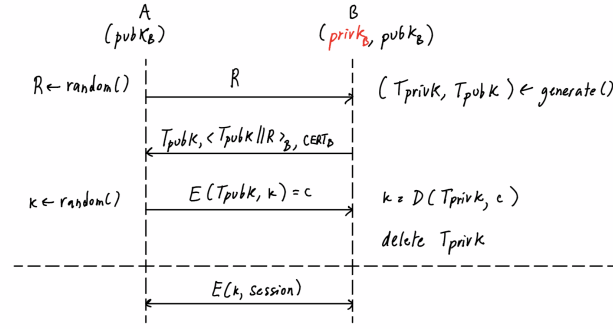 A B
(pubK_B) (privK_B, pubK_B)
R ← random() R (TprivK, TpubK) ← generate()
TpubK, <TpubK || R>_B, CERT_B
K ← random() E(TpubK, K) = c K = D(TprivK, c)
delete TprivK
E(K, session)